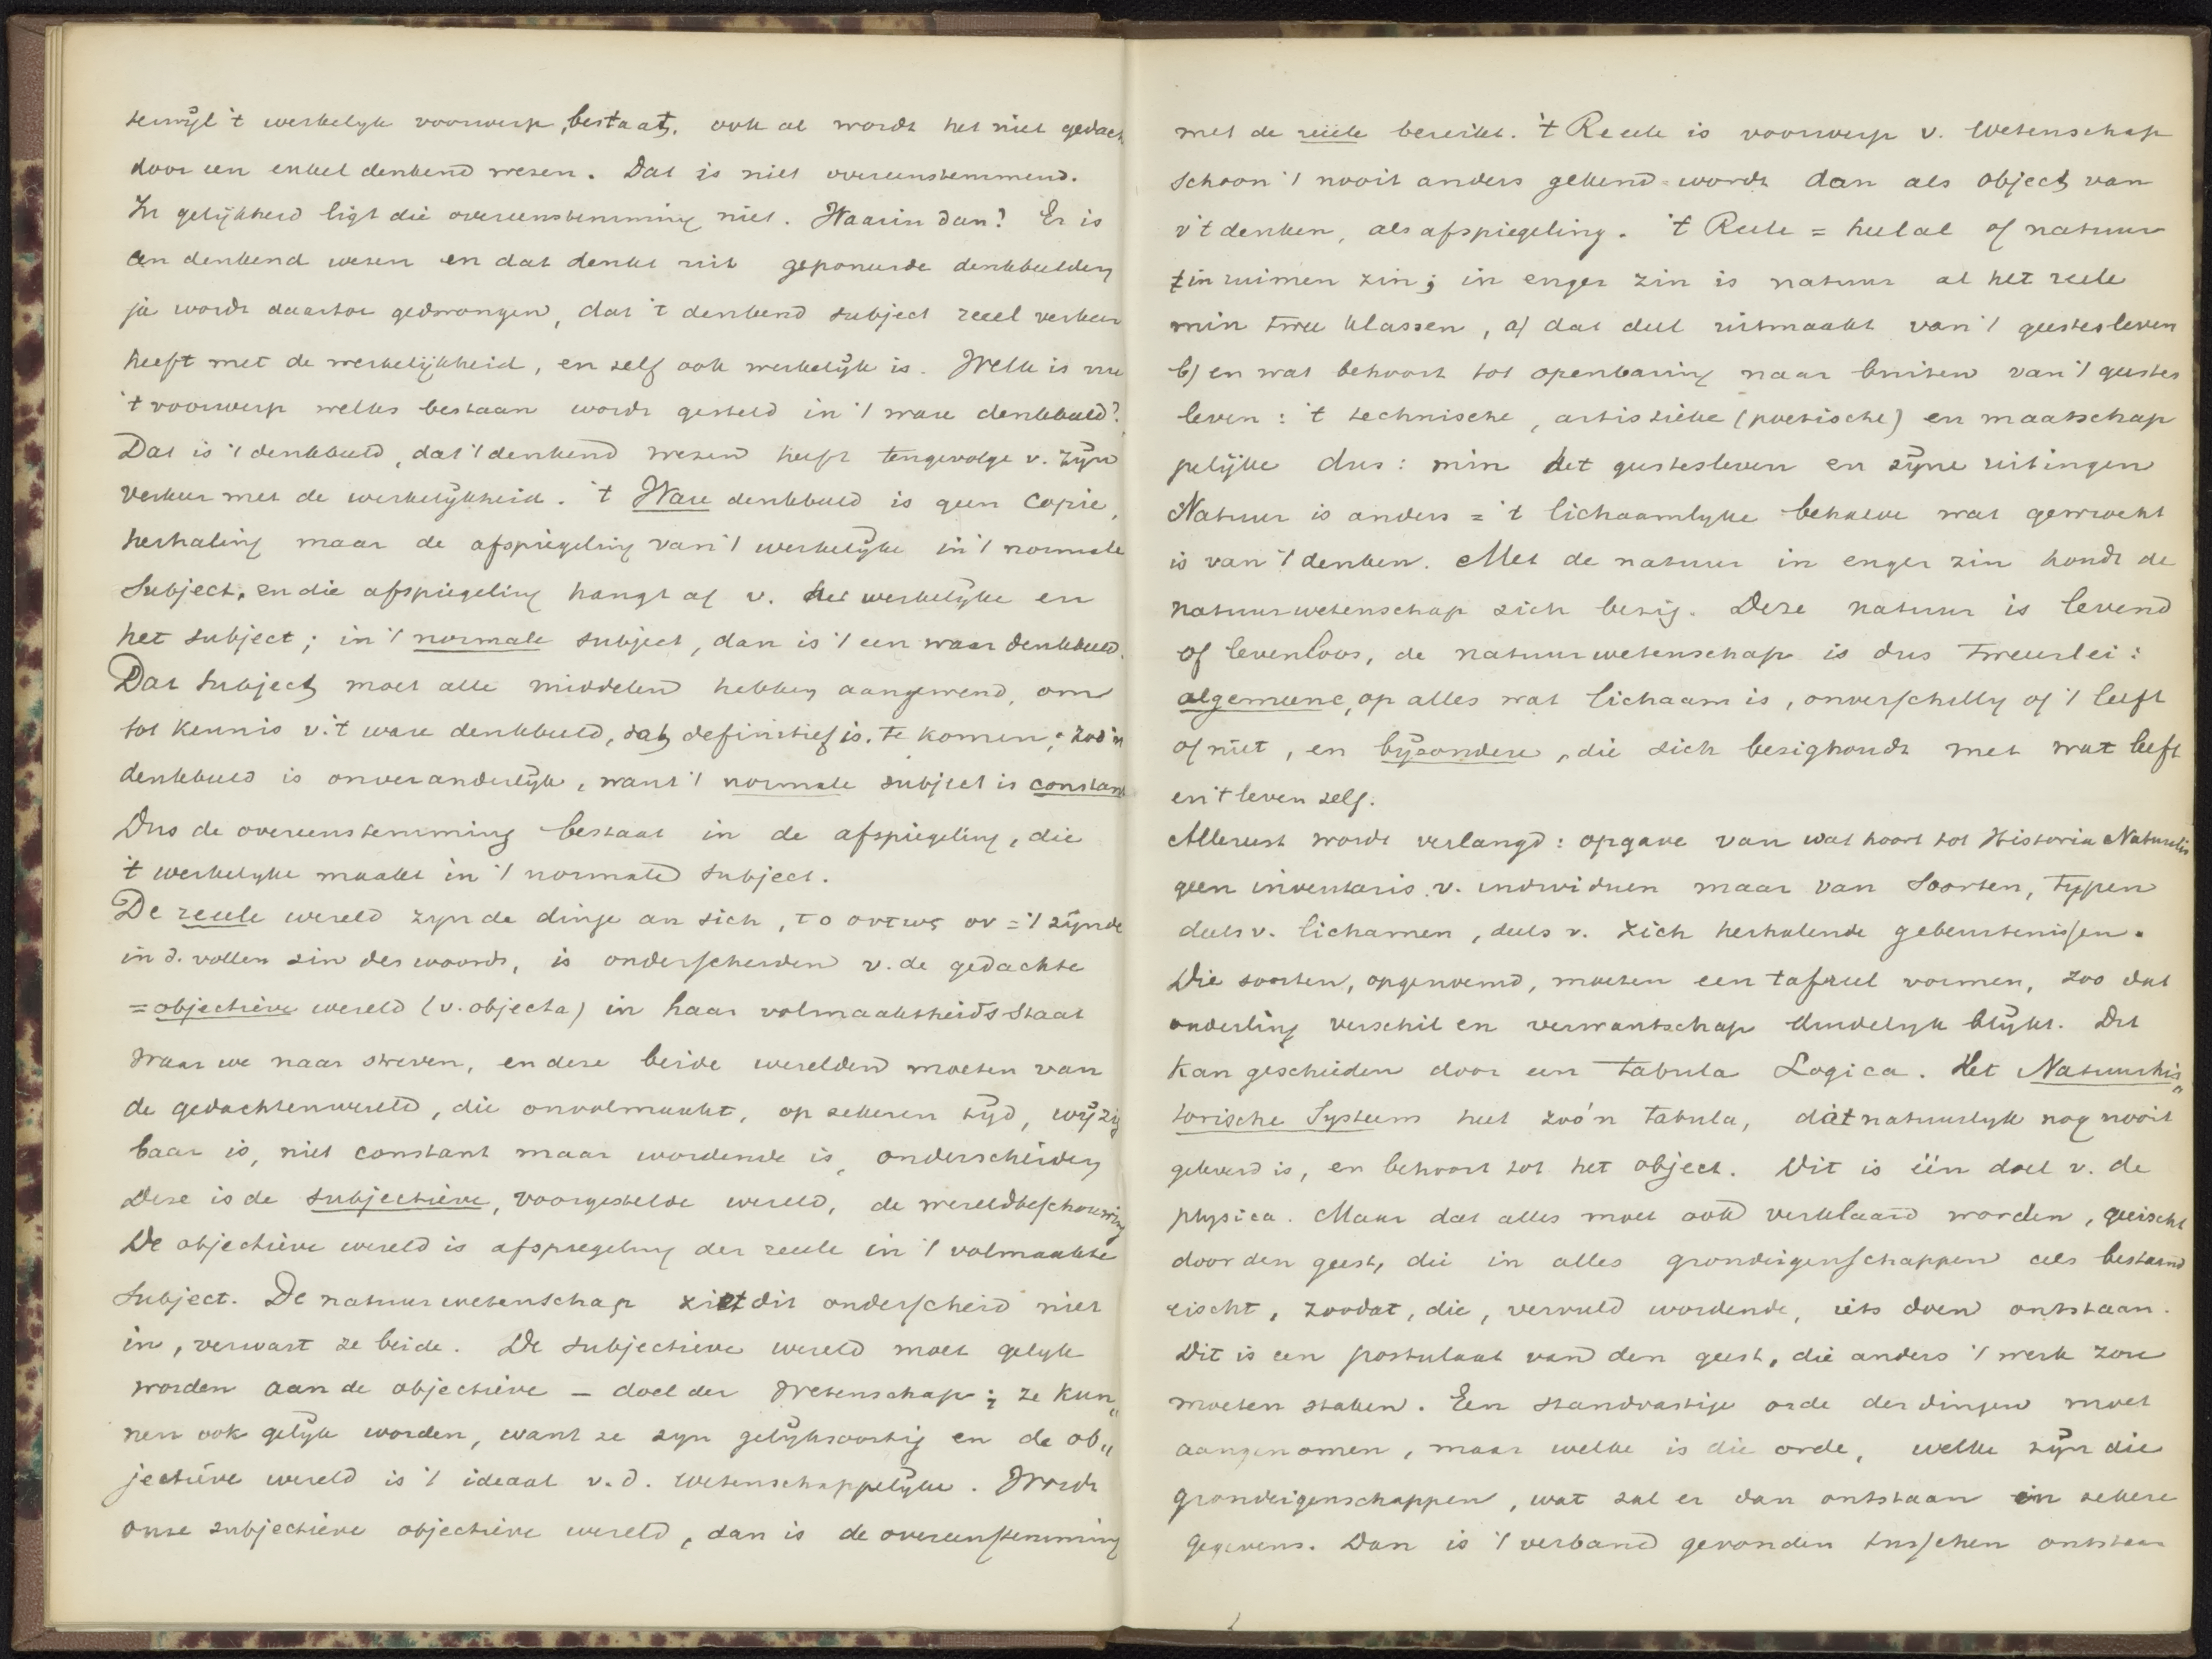 terwijl 't werkelyk voorwerp, bestaat, ook al wordt het niet gedach
door een enkel denkend wezen. Dat is niet overeenstemmend.
In gelijkheid ligt die overeenstemming niet. Waarin dan? Er is
een denkend wezen en dat denkt uit geponeerde denkbeelden
ja wordt daartoe gedwongen, dat 't denkend subject reeel verkeer
heeft met de werkelijkheid, en zelf ook werkelyk is. Welk is nu
't voorwerp welks bestaan wordt gesteld in 't ware denkbeeld?
Dat is 't denkbeeld, dat 't denkend wezen heeft tengevolge v. zijn
verkeer met de werkelijkheid. 't Ware denkbeeld is geen copie,
herhaling maar de afspiegeling van 't werkelijke in 't normale
subject, en die afspiegeling hangt af v. het werkelijke en
het subject; in 't normale subject, dan is 't een waar denkbeeld.
Dat subject moet alle middelen hebben aangewend, om
tot kennis v. 't ware denkbeeld, dat definitief is, te komen; zoo'n
denkbeeld is onveranderlijk, want 't normale subject is constant
Dus de overeenstemming bestaat in de afspiegeling, die
't werkelyke maakt in 't normale subject.
De reeele wereld zyn de dinge an sich, το οντως ον = 't zijnde
in d. vollen zin des woords, is onderscheiden v. de gedachte
= objectieve wereld (v. objecta) in haar volmaaktheids staat
waar we naar streven, en deze beide werelden moeten van
de gedachtenwereld, die onvolmaakt, op zekeren tijd, wijzig
baar is, niet constant maar wordende is, onderscheiden
Deze is de subjectieve, voorgestelde wereld, de wereldbeschouwing
De objectieve wereld is afspiegeling der reeele in 't volmaakte
subject. De natuurwetenschap ziet dit onderscheid niet
in, verwart ze beide. De subjectieve wereld moet gelyk
worden aan de objectieve – doel der wetenschap; ze kun„
nen ook gelijk worden, want ze zyn gelijksoortig en de ob„
jectieve wereld is 't ideaal v. d. wetenschappelijke. Wordt
onze subjectieve objectieve wereld, dan is de overeenstemming
met de reëele bereikt. 't Reeele is voorwerp v. wetenschap
schoon 't nooit anders gekend wordt dan als object van
v 't denken, als afspiegeling. 't Reele = heelal of natuur
in ruimen zin; in enger zin is natuur al het reele
min twee klassen, a) dat deel uitmaakt van 't geestesleven
b) en wat behoort tot openbaring naar buiten van 't geestes
leven: 't technische, artistieke (poetische) en maatschap
pelijke dus: min het geestesleven en zijne uitingen
Natuur is anders = 't lichaamlyke behalve wat gewrocht
is van 't denken. Met de natuur in enger zin houdt de
natuurwetenschap zich bezig. Deze natuur is levend
of levenloos, de natuurwetenschap is dus tweeerlei:
algemeene, op alles wat lichaam is, onverschillig of 't leeft
of niet, en bijzondere, die zich bezighoudt met wat leeft
en 't leven zelf.
Allereerst wordt verlangd: opgave van wat hoort tot Historia Naturalis
geen inventaris v. individuen maar van soorten, typen
deels v. lichamen, deels v. zich herhalende gebeurtenissen.
Die soorten, opgenoemd, moeten een tafreel vormen, zoo dat
onderling verschil en verwantschap duidelyk blijkt. Dit
kan geschieden door een Tabula Logica. Het Natuurhis„
torische Systeem heet zoo'n tabula, dát natuurlyk nog nooit
geleverd is, en behoort tot het object. Dit is één doel v. de
physica. Maar dat alles moet ook verklaard worden, geeischt
door den geest, die in alles grondeigenschappen als bestaand
eischt, zoodat, die, vervuld wordende, iets doen ontstaan.
Dit is een postulaat van den geest, die anders 't werk zou
moeten staken. Een standvastige orde der dingen moet
aangenomen, maar welke is die orde, welke zijn die
grondeigenschappen, wat zal er dan ontstaan in zekere
gegevens. Dan is 't verband gevonden tusschen ontstaan